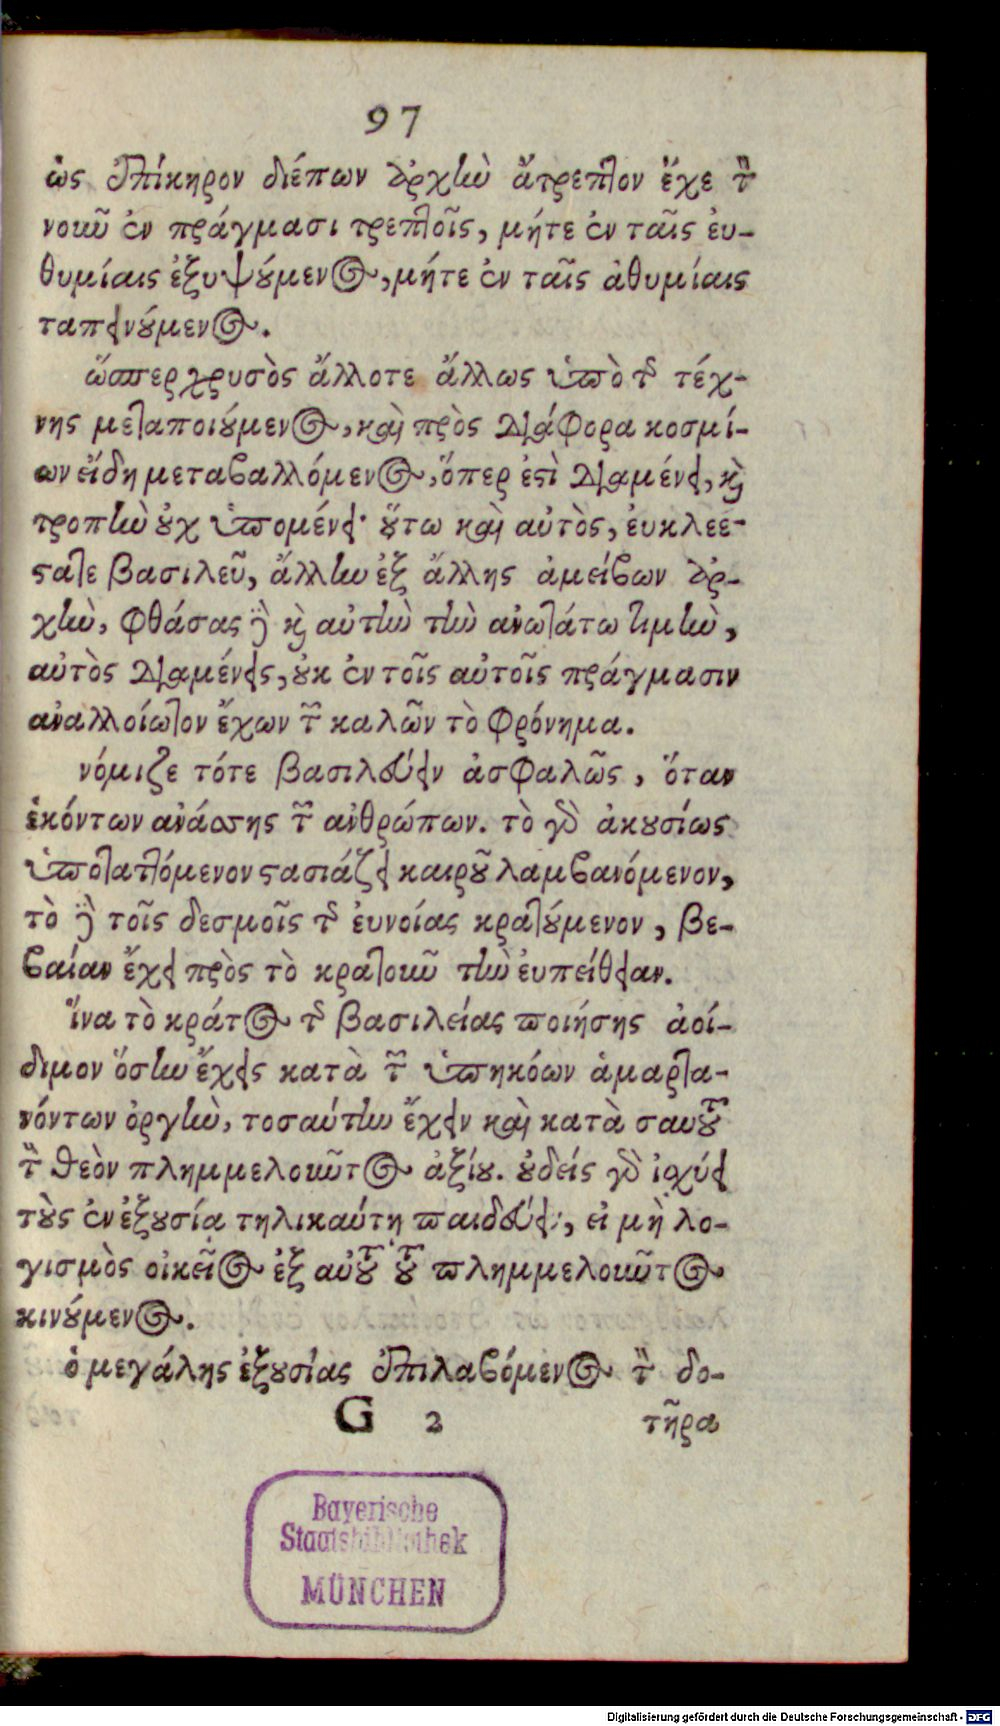 97
ὡς ἐπίκηρον διέπων ἀρχὴν ἄτρεπτον ἔχε τὸν
νοῦν ἐν πράγμασι τρεπτοῖς, μήτε ἐν ταῖς ἐυ-
θυμίαις ἐξυψούμενος, μήτε ἐν ταῖς ἀθυμίαις
ταπεινούμενος.
ὥσπερ χρυσὸς ἄλλοτε ἄλλως ὑπὸ τῆς τέχ-
νης μεταποιούμενος, καὶ πρὸς διάφορα κοσμί-
ων εἴδη μεταβαλλόμενος, ὅπερ ἐστὶ διαμένει, καὶ
τροπὴν οὐχ ὑπομένει· οὕτω καὶ αὐτὸς, ἐυκλεέ-
στατε βασιλεῦ, ἄλλην ἐξ ἄλλης ἀμείβων ἀρ-
χὴν, φθάσας δὲ καὶ αὐτὴν τὴν ἀνωτάτω τιμὴν,
αὐτὸς διαμένεις, οὐκ ἐν τοῖς αὐτοῖς πράγμασιν
ἀναλλοίωτον ἔχων τῶν καλῶν τὸ φρόνημα.
νόμιζε τότε βασιλεύειν ἀσφαλῶς, ὅταν
ἑκόντων ἀνάσσης τῶν ἀνθρώπων. τὸ γὰρ ἀκουσίως
ὑποταττόμενον στασιάζει καιροῦ λαμβανόμενον,
τὸ δὲ τοῖς δεσμοῖς τῆς ἐυνοίας κρατούμενον, βε-
βαίαν ἔχει πρὸς τὸ κρατοῦν τὴν ἐυπείθειαν.
ἵνα τὸ κράτος τῆς βασιλείας ποιήσης ἀοί-
διμον ὅσην ἔχεις κατὰ τῶν ὑπηκόων ἁμαρτα-
νόντων ὀργὴν, τοσαύτην ἔχειν καὶ κατὰ σαυτοῦ
τὸν θεὸν πλημμελοῦντος ἀξίου. οὐδείς γὰρ ἰσχύει
τοὺς ἐν ἐξουσία τηλικαύτη παιδεύειν, εἰ μὴ λο-
γισμὸς οἰκεῖος ἐξ αὐτοῦ τοῦ πλημμελοῦντος
κινούμενος.
ὁ μεγάλης ἐξουσίας ἐπιλαβόμενος τὸν δο-
G 2 τῆρα
Bayerische
Staatsbibliothek
MÜNCHEN
Digitalisierung gefördert durch die Deutsche Forschungsgemeinschaft - DFG